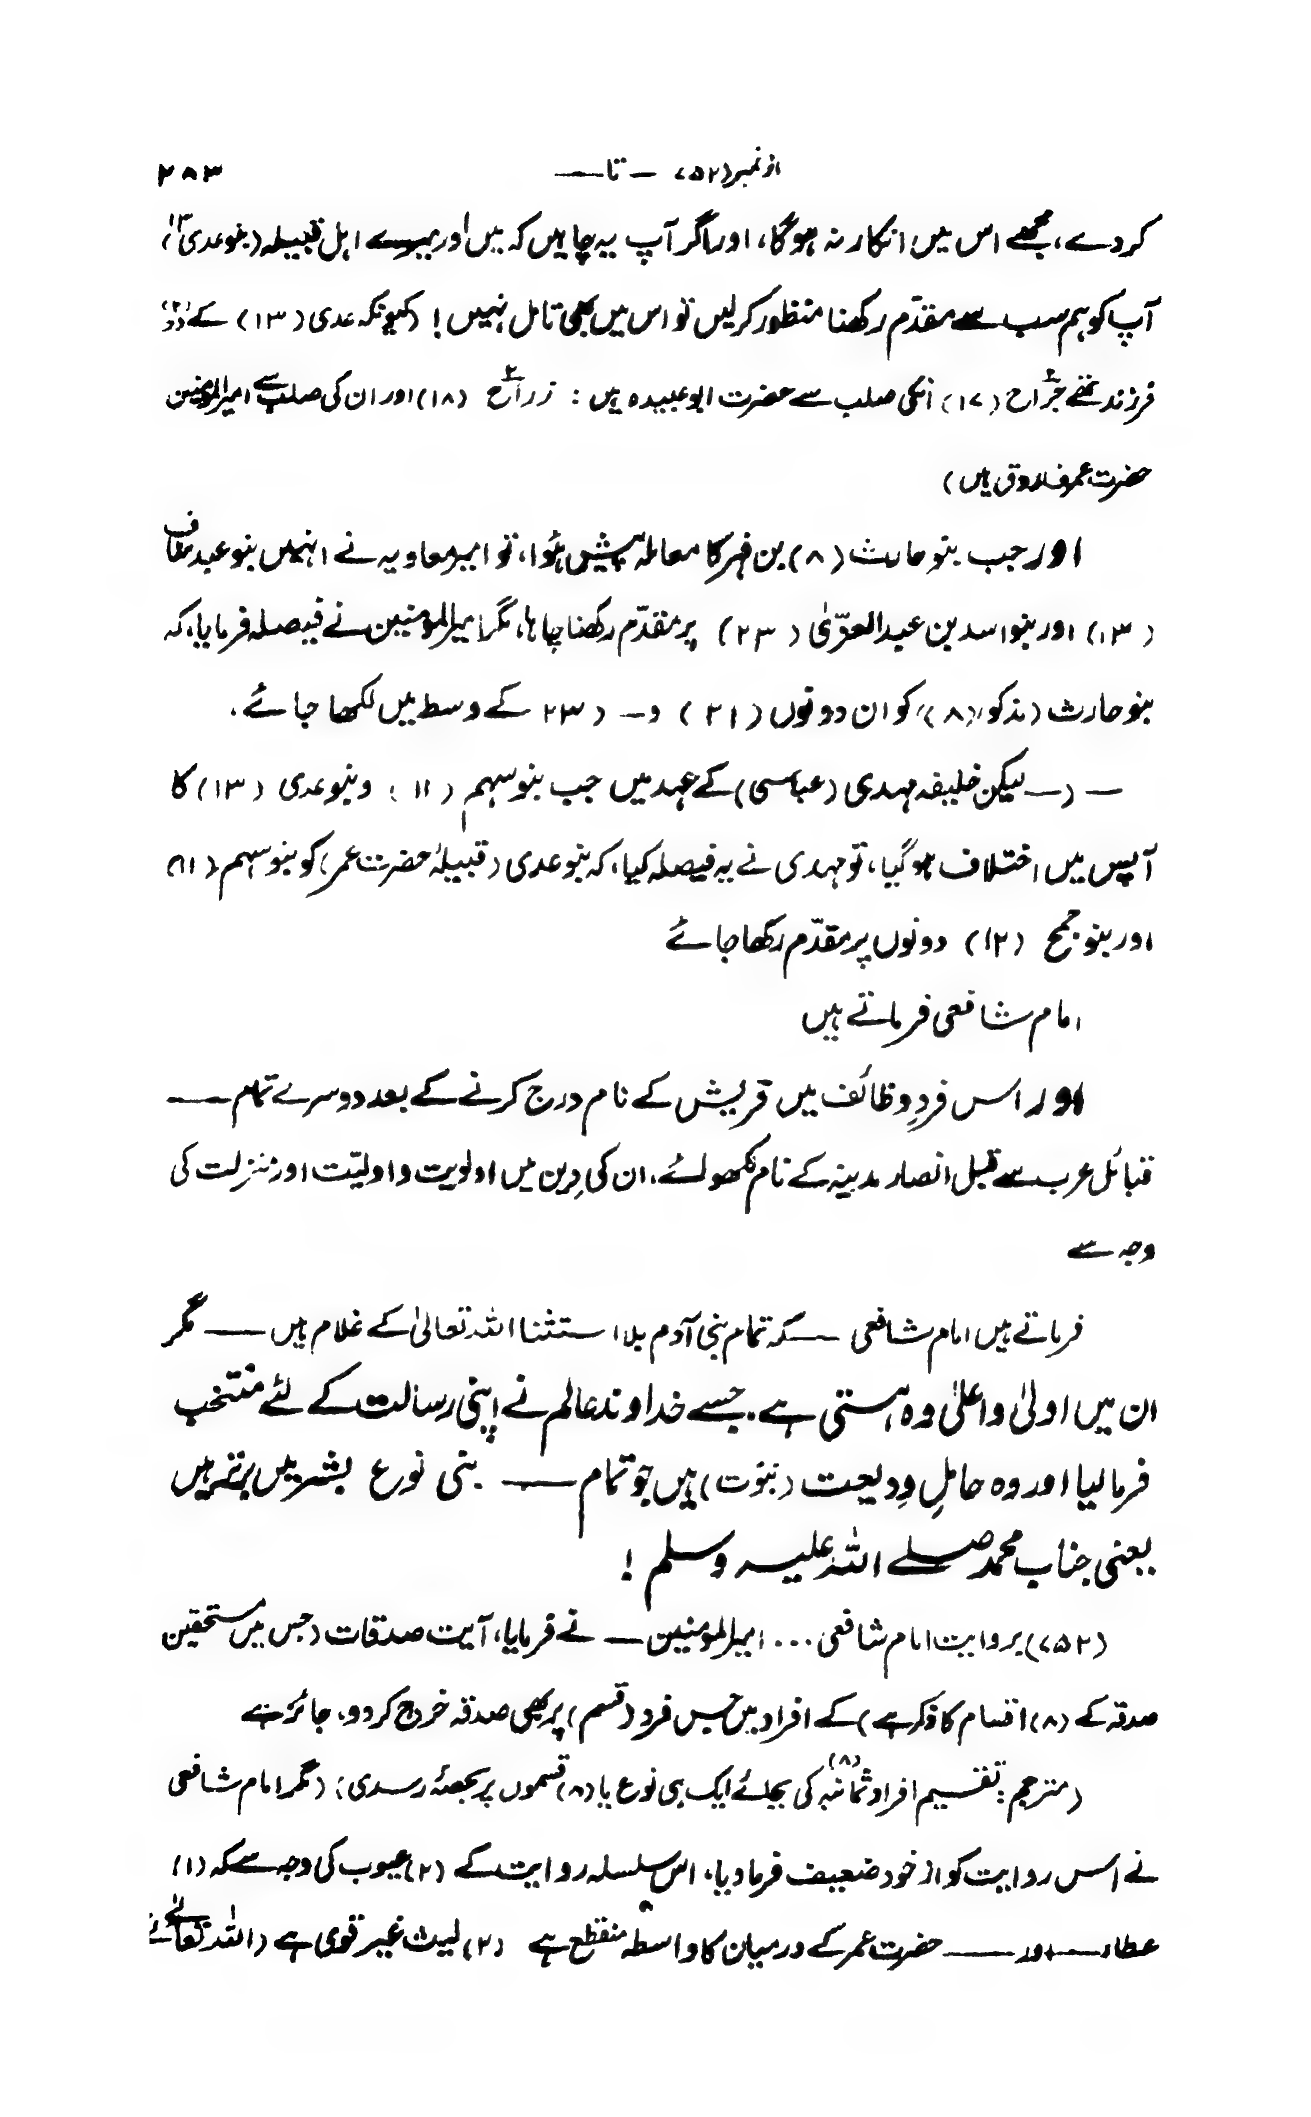 از نمبر (۷۵۲ — تا —
۲۸۳
کردے، مجھے اس میں انکار نہ ہوگا، اور اگر آپ یہ چاہیں کہ میں اور میرے اہل قبیلہ (بنو عدی ۱۳)
آپ کو ہم سب سے مقدّم رکھنا منظور کر لیں تو اس میں بھی تامل نہیں! (کیونکہ عدی (۱۳) کے دو
فرزند تھے جرّاح (۱۷) انکی صلب سے حضرت ابو عبیدہ ہیں: زراح (۱۸) اور ان کی صلب سے امیرالمومنین
حضرت عمر فاروق ہیں)
اور جب بنو حارث (۸) بن فہر کا معاملہ پیش ہُوا، تو امیر معاویہ نے انہیں بنو عبد مناف
(۱۳) اور بنو اسد بن عبدالعزّیٰ (۲۳) پر مقدّم رکھنا چاہا، مگر امیرالمومنین نے فیصلہ فرمایا، کہ
بنو حارث (مذکور (۸)) کو ان دونوں (۲۱) و — (۲۳ کے وسط میں لکھا جائے۔
— (— لیکن خلیفہ مہدی (عباسی) کے عہد میں جب بنو سہم (۱۱) و بنو عدی (۱۳) کا
آپس میں اختلاف ہو گیا، تو مہدی نے یہ فیصلہ کیا، کہ بنو عدی (قبیلۂ حضرت عمر) کو بنو سہم (۱۱)
اور بنو جمح (۱۲) دونوں پر مقدّم رکھا جائے
امام شافعی فرماتے ہیں
اور اس فردِ وظائف میں قریش کے نام درج کرنے کے بعد دوسرے تمام —
قبائل عرب سے قبل انصار مدینہ کے نام لکھوائے، ان کی دِین میں اولویت و اولیّت اور منزلت کی
وجہ سے
فرماتے ہیں امام شافعی — کہ تمام بنی آدم بلا استثنا اللہ تعالیٰ کے غلام ہیں — مگر
ان میں اولیٰ و اعلیٰ وہ ہستی ہے۔ جسے خداوند عالم نے اپنی رسالت کے لئے منتخب
فرما لیا اور وہ حاملِ ودیعت (نبوّت) ہیں جو تمام — بنی نوع بشر میں برتر ہیں
یعنی جناب محمد صلے اللہ علیہ وسلم!
(۷۵۲) بروایت امام شافعی ... امیرالمومنین — نے فرمایا، آیت صدقات (جس میں مستحقین
صدقہ کے (۸) اقسام کا ذکر ہے) کے افراد میں جس فرد (قسم) پر بھی صدقہ خرچ کر دو، جائز ہے
(مترجم: تقسیم افراد ثمانیہ (۸) کی بجائے ایک ہی نوع یا (۸) قسموں پر بحصّۂ رسدی) (مگر امام شافعی
نے اس روایت کو از خود ضعیف فرما دیا، اس سلسلہ روایت کے (۲) عیوب کی وجہ سے کہ (۱)
عطاء — اور — حضرت عمر کے درمیان کا واسطہ منقطع ہے (۲) لیث غیر قوی ہے (اللہ تعالےٰ نے